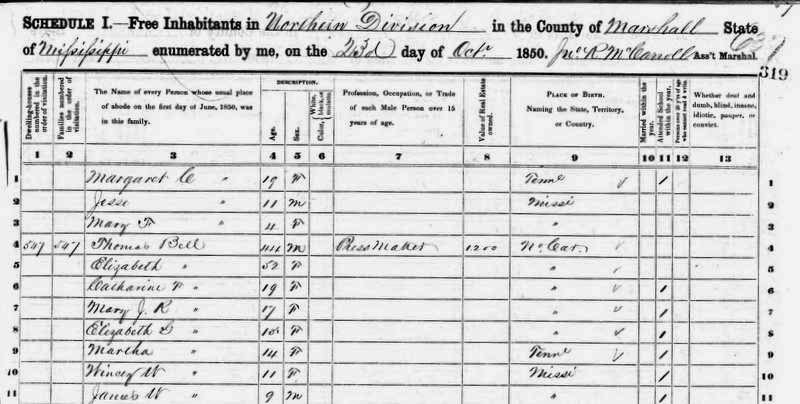 SCHEDULE I.—Free Inhabitants in Northern Division in the County of Marshall State
of Mississippi enumerated by me, on the 23d day of Octr 1850. Jno R McCarroll Ass't Marshal.
637
319
Dwelling-houses numbered in the order of visitation.
Families numbered in the order of visitation.
The Name of every Person whose usual place of abode on the first day of June, 1850, was in this family.
DESCRIPTION.
Age.
Sex.
Color, White, black, or mulatto.
Profession, Occupation, or Trade of each Male Person over 15 years of age.
Value of Real Estate owned.
PLACE OF BIRTH. Naming the State, Territory, or Country.
Married within the year.
Attended School within the year.
Persons over 20 y'rs of age who cannot read & write.
Whether deaf and dumb, blind, insane, idiotic, pauper, or convict.
1 2 3 4 5 6 7 8 9 10 11 12 13
1 Margaret C " 19 F Tenne 1 1
2 Jesse " 11 M Missi 2
3 Mary F " 4 F " 3
4 547 547 Thomas Bell 44 M Press Maker 1200 No Car 4
5 Elizabeth " 52 F " 5
6 Catharine F " 19 F " 1 6
7 Mary J. R " 17 F " 1 7
8 Elizabeth G " F " 1 8
9 Martha " 14 F Tenne 1 9
10 Wincey W " 11 F Missi 1 10
11 James W " 9 M " 1 11